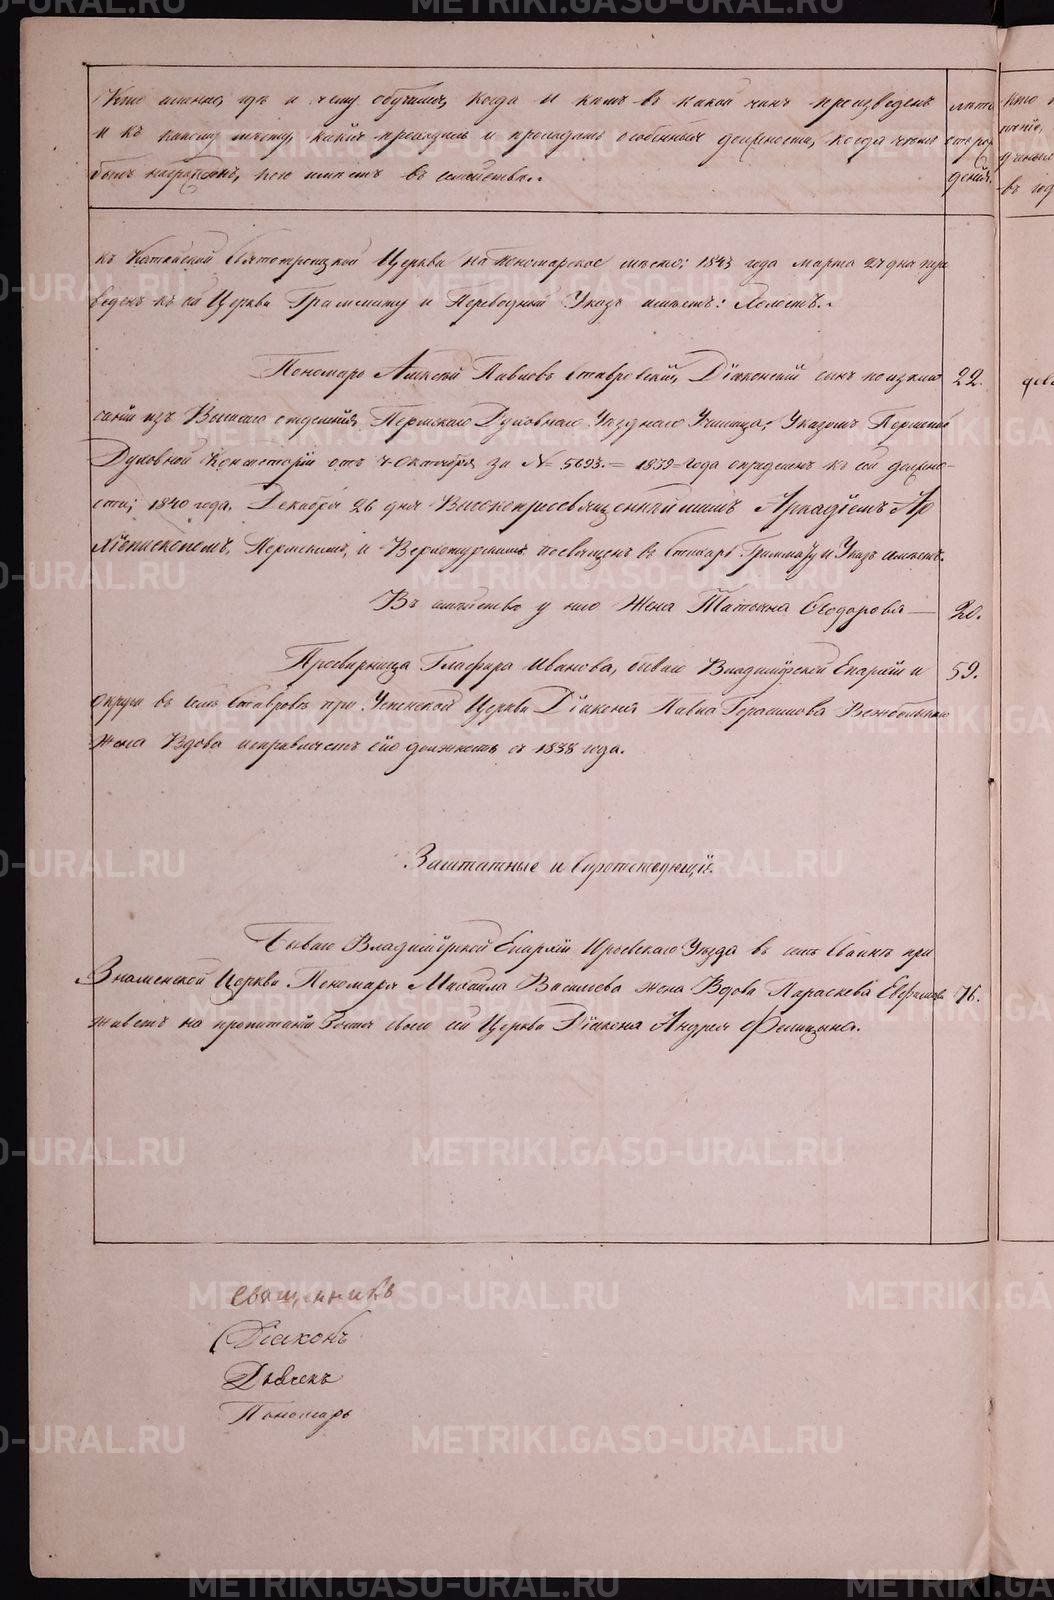 Кто именно, гдѣ и чему обучался, когда и кѣмъ въ какой чинъ произведенъ
и къ какому мѣсту, какія проходилъ и проходитъ особенныя должности, когда чѣмъ
былъ награжденъ, кого имѣетъ въ семействѣ.
лѣта
отъ рож
денія.
къ Свято-Троицкой Церкви на Пономарское мѣсто; 1843 года Марта 27 дня пере
веденъ къ сей Церкви Грамоту и Переводный Указъ имѣетъ: Холостъ.
Пономарь Алексѣй Павловъ Ставровскій, Діаконскій сынъ по исклю 22.
ченіи изъ Высшаго отдѣленія Пермскаго Духовнаго Уѣзднаго Училища; Указомъ Пермской
Духовной Консисторіи отъ 4 Октября за № 5693 = 1839 = года опредѣленъ къ сей должно-
сти; 1840 года Декабря 26 дня Высокопреосвященнѣйшимъ Аркадіемъ Ар
хіепископомъ Пермскимъ и Верхотурскимъ посвященъ въ Стихарь Грамоту и Указъ имѣетъ.
Въ семействѣ у него Жена Татьяна Ѳеодорова 20.
Просвирница Глафира Иванова, бывшаго Владимірской Епархіи и 59.
Округи въ селѣ Ставровѣ при Успенской Церкви Діакона Павла Герасимова
жена Вдова исправляетъ сію должность съ 1838 года.
Заштатные и Сиротствующіе.
Бывшаго Владимірской Епархіи Юрьевскаго Уѣзда въ селѣ при
Знаменской Церкви Пономаря Михаила Васильева жена Вдова Параскева Евфимова 76.
живетъ на пропитаніи своего сей Церкви Діакона Андрея Фелицына.
Священникъ
Діаконъ
Дьячекъ
Пономарь
METRIKI.GASO-URAL.RU